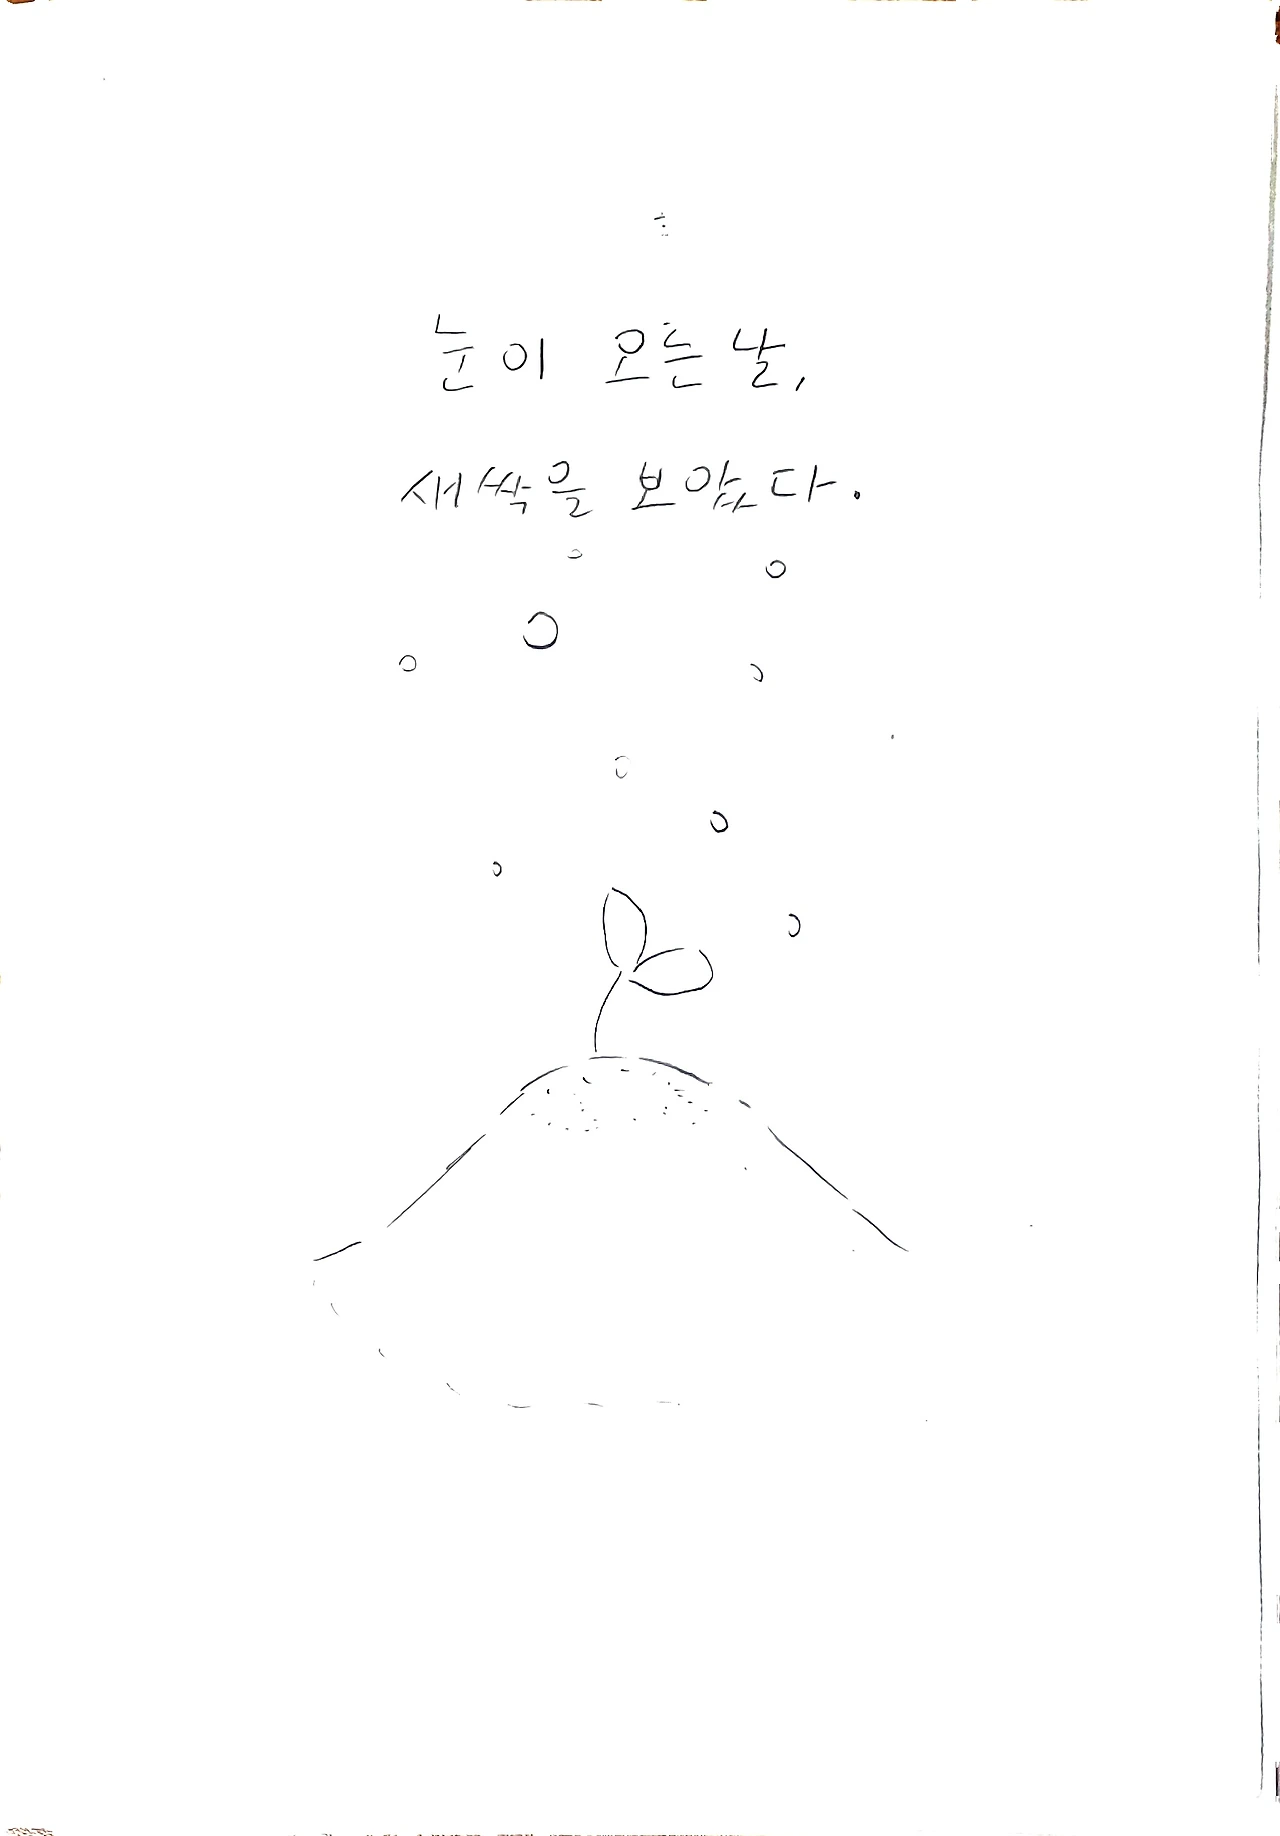 눈이 오는날,
새싹을 보았다.